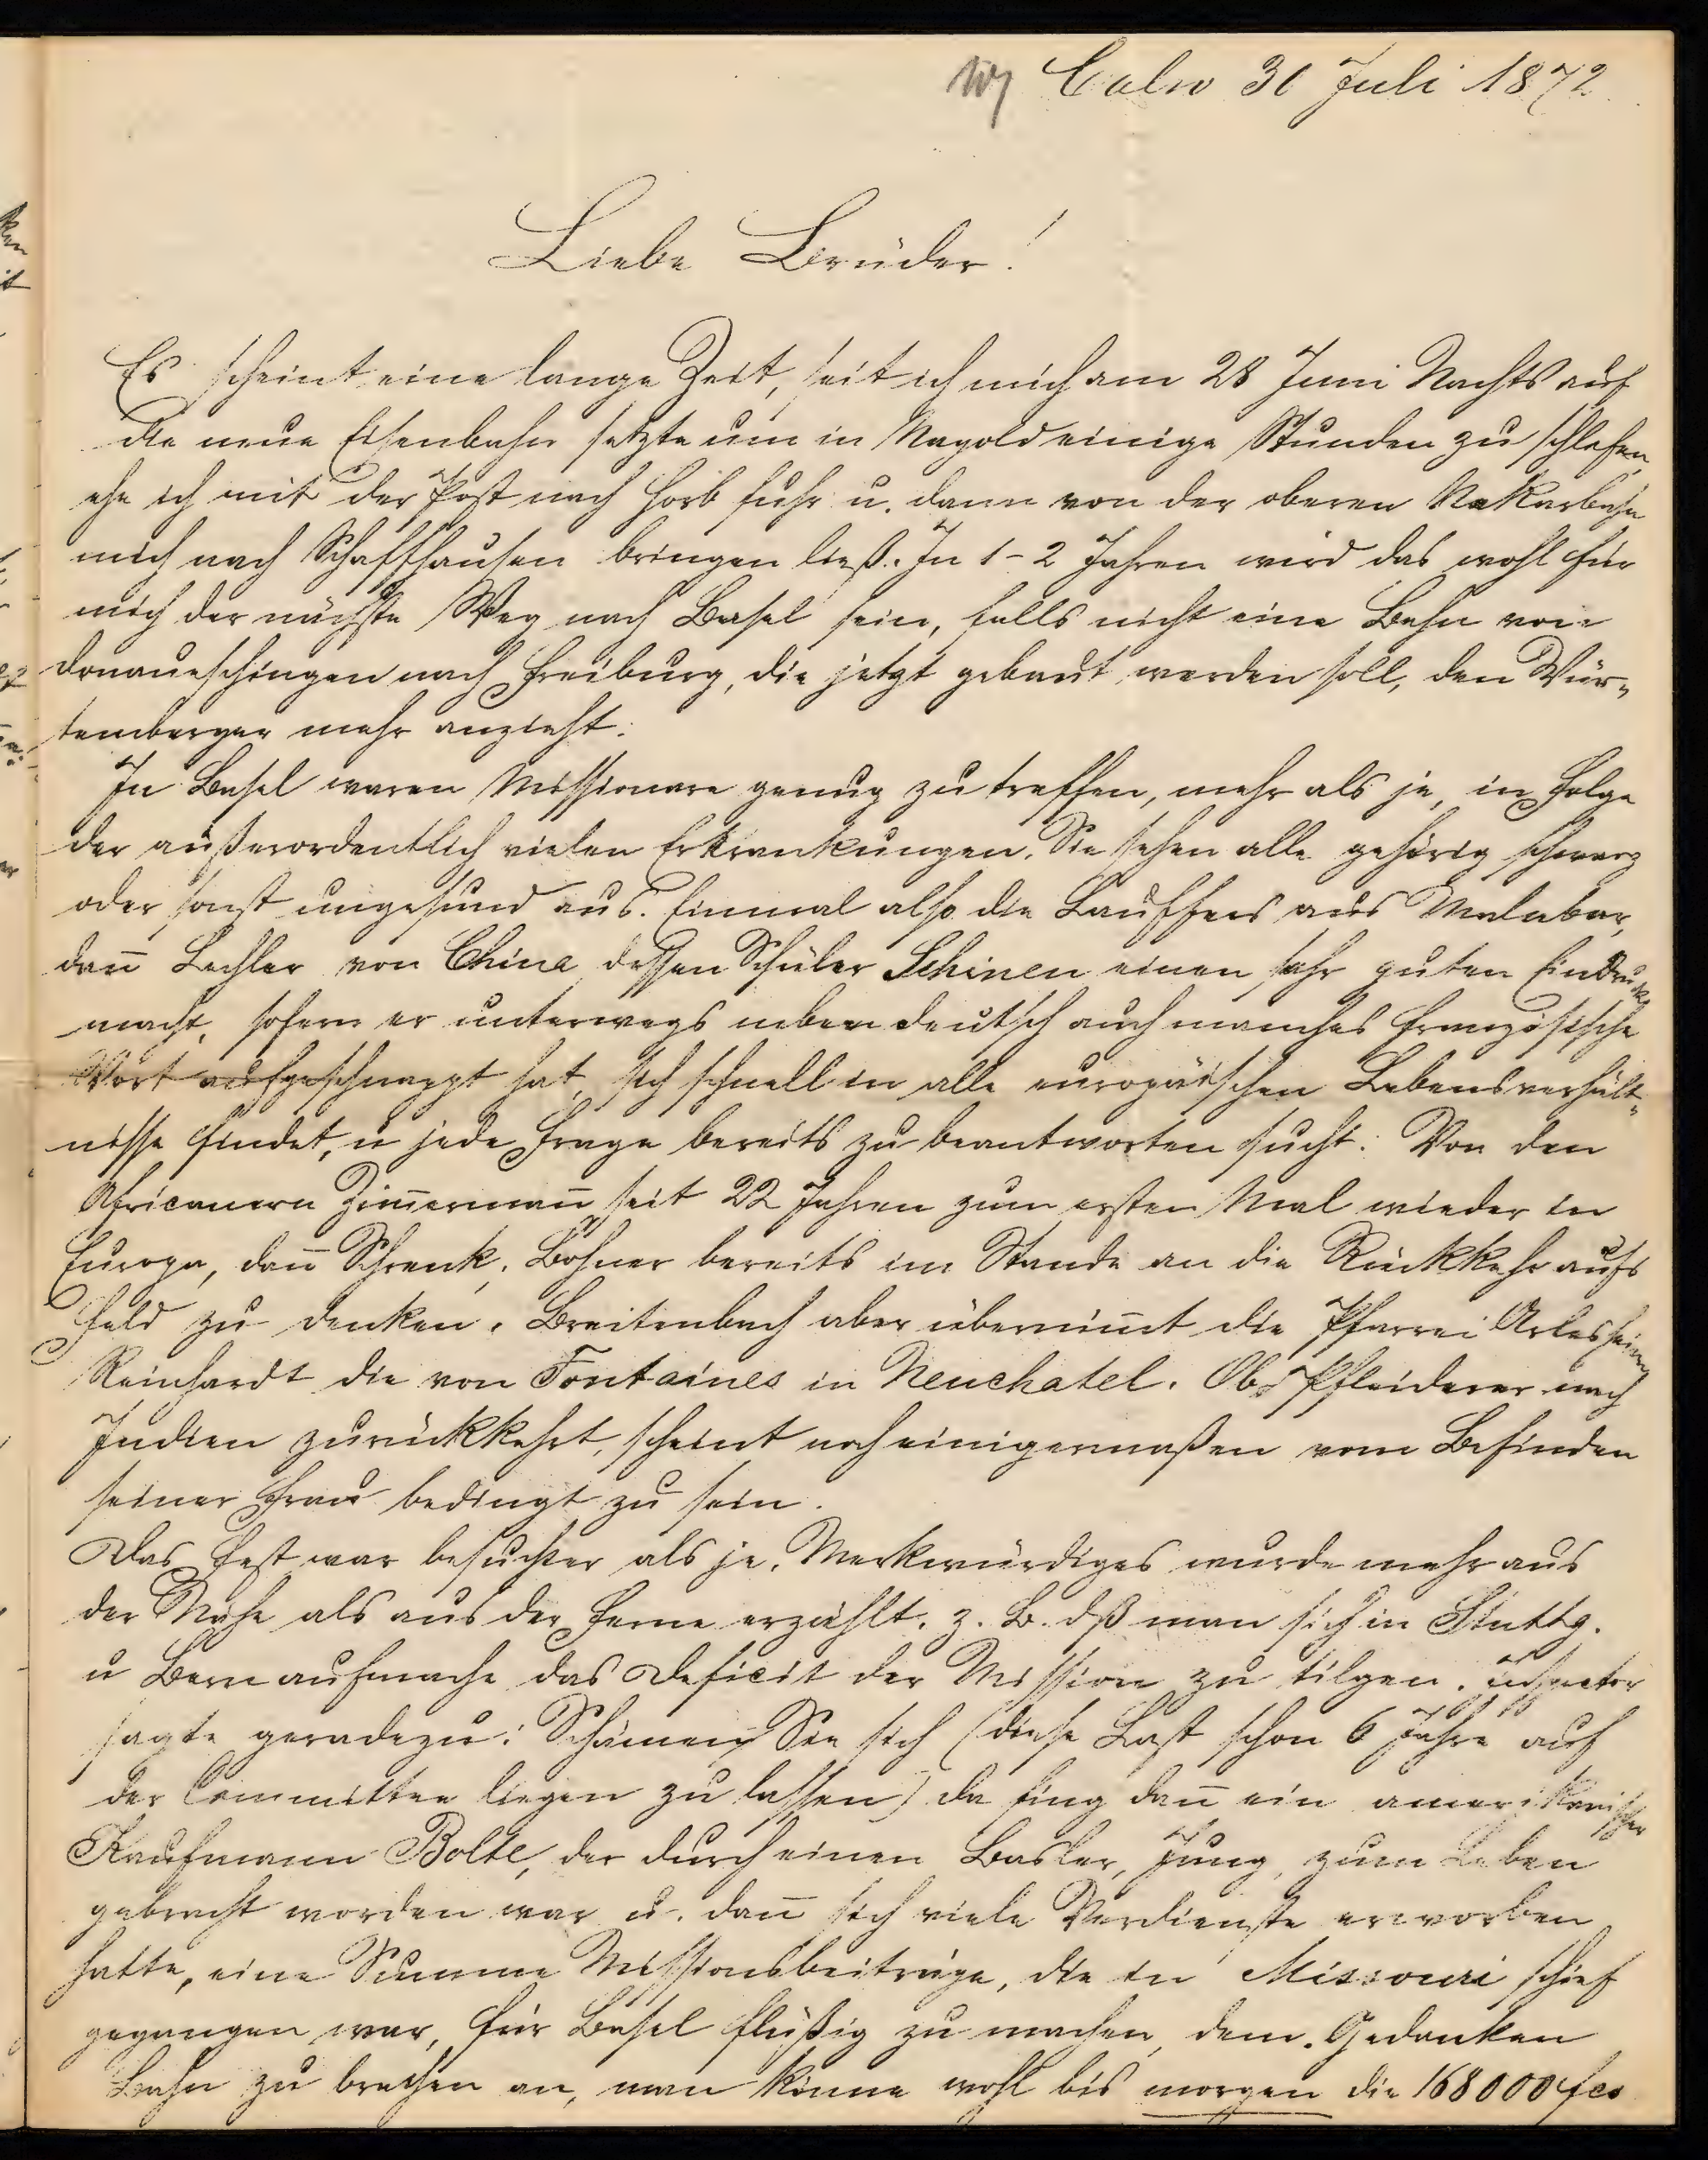 Calw 30 Juli 1872
Liebe Brüder!
Es scheint eine lange Zeit, seit ich mich am 28 Juni Nachts auf
die neue Eisenbahn setzte um in Nagold einige Stunden zu schlafen,
ehe ich mit der Post nach Horb fuhr u. dann von der oberen Nekarbahn
mich nach Schaffhausen bringen ließ. In 1-2 Jahren wird das wohl für
mich der nächste Weg nach Basel sein, falls nicht eine Bahn von
Donaueschingen nach Freiburg, die jetzt gebaut werden soll, den Wür-
temberger mehr anzieht.
In Basel waren Missionare genug zu treffen, mehr als je, in Folge
der außerordentlich vielen Erkrankungen. Sie sehen alle gehörig schwarz
oder sonst ungesund aus. Einmal also die Lauffers aus Malabar,
dañ Lechler von China, dessen Schüler Schinen einen sehr guten Eindruck
macht, sofern er unterwegs neben deutsch auch manches französische
Wort aufgeschnappt hat, sich schnell in alle europäischen Lebensverhält-
nisse findet, u jede Frage bereits zu beantworten sucht. Von den
Africanern Zim̄ermañ, seit 22 Jahren zum ersten Mal wieder in
Europa, dañ Schrenk, Bohner bereits im Stande an die Rückkehr aufs
Feld zu denken. Breitenbach aber übernim̄t die Pfarrei Arlesheim
Reinhardt die von Fontaines in Neuchatel. Ob Pfleiderer nach
Indien zurückkehrt, scheint noch einigermaßen vom Befinden
seiner Frau bedingt zu sein.
Das Fest war besuchter als je. Merkwürdiges wurde mehr aus
der Nähe als aus der Ferne erzählt. z. B. dß man sich in Stuttg.
u Bern aufmache das Deficit der Mission zu tilgen. Inspector
sagte geradezu: Schämen Sie sich (diese Last schon 6 Jahre auf
der Committee liegen zu lassen) da fing dañ ein amerikanischer
Kaufmann Bolte, der durch einen Basler, Jung, zum Leben
gebracht worden war u. dañ sich viele Verdienste erworben
hatte, eine Summe Missionsbeiträge, die in Missouri schief
gegangen war, für Basel flüßig zu machen, dem Gedanken
Bahn zu brechen an, man könne wohl bis morgen die 168000 fcs